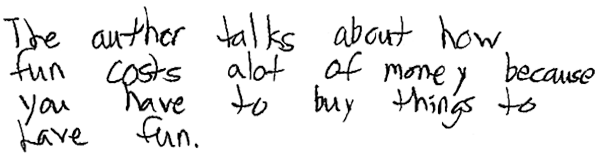 The author talks about how
fun costs alot of money because
you have to buy things to
have fun.